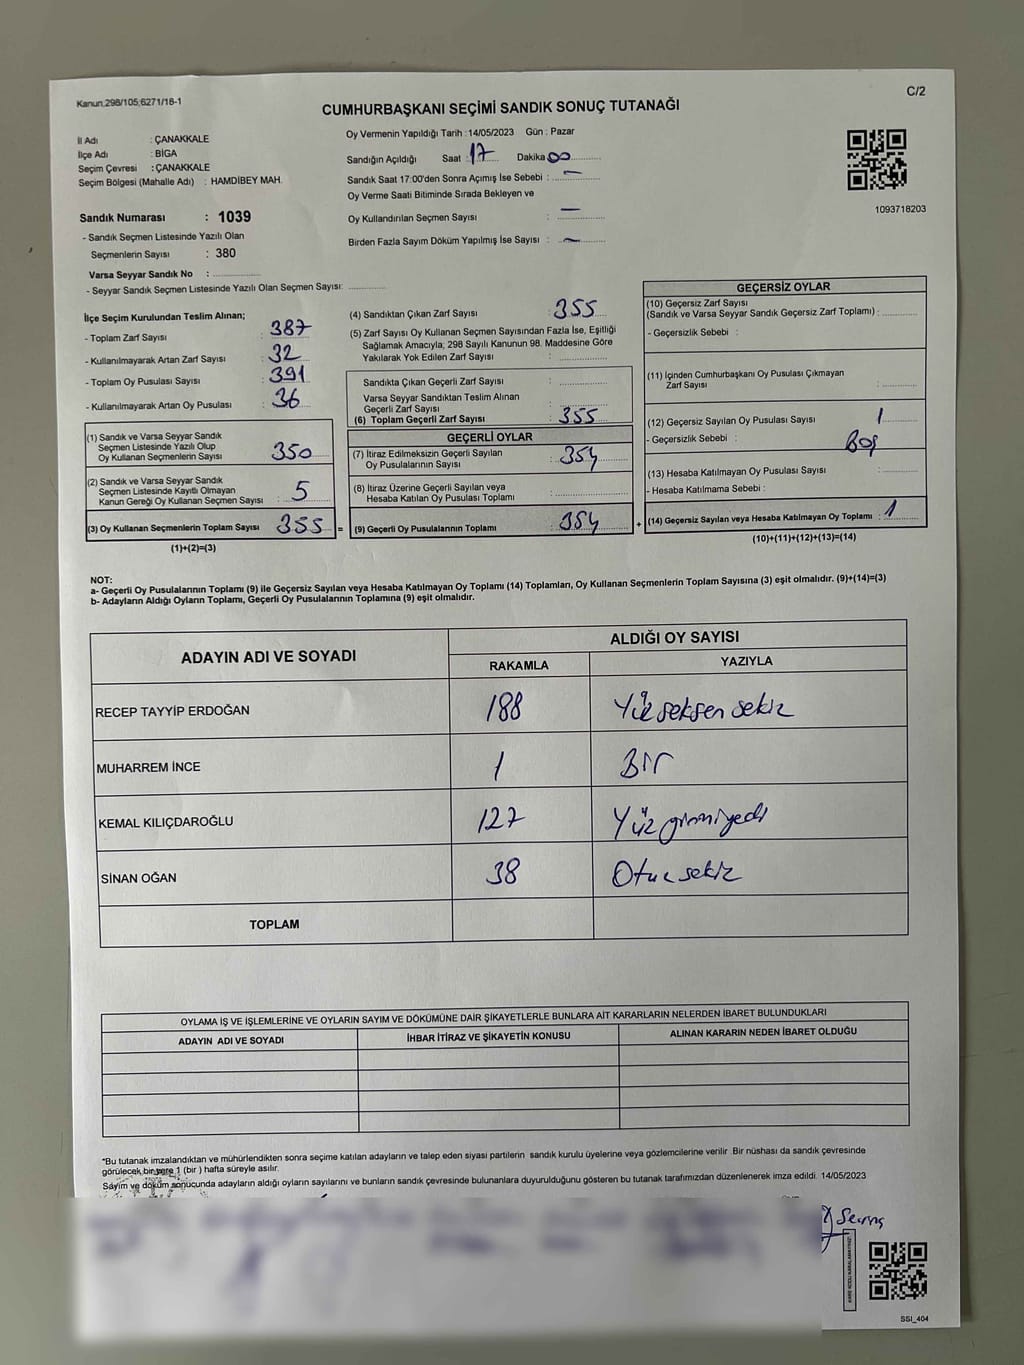 Kanun.298/105;6271/18-1
C/2
CUMHURBAŞKANI SEÇİMİ SANDIK SONUÇ TUTANAĞI
İl Adı : ÇANAKKALE
İlçe Adı : BİGA
Seçim Çevresi : ÇANAKKALE
Seçim Bölgesi (Mahalle Adı) : HAMDİBEY MAH.
Sandık Numarası : 1039
- Sandık Seçmen Listesinde Yazılı Olan
Seçmenlerin Sayısı : 380
Varsa Seyyar Sandık No :
- Seyyar Sandık Seçmen Listesinde Yazılı Olan Seçmen Sayısı:
Oy Vermenin Yapıldığı Tarih : 14/05/2023 Gün : Pazar
Sandığın Açıldığı Saat : 17 Dakika 00
Sandık Saat 17:00'den Sonra Açımış İse Sebebi : —
Oy Verme Saati Bitiminde Sırada Bekleyen ve
Oy Kullandırılan Seçmen Sayısı : —
Birden Fazla Sayım Döküm Yapılmış İse Sayısı : —
1093718203
İlçe Seçim Kurulundan Teslim Alınan;
- Toplam Zarf Sayısı : 387
- Kullanılmayarak Artan Zarf Sayısı : 32
- Toplam Oy Pusulası Sayısı : 391
- Kullanılmayarak Artan Oy Pusulası : 36
(1) Sandık ve Varsa Seyyar Sandık
Seçmen Listesinde Yazılı Olup
Oy Kullanan Seçmenlerin Sayısı 350
(2) Sandık ve Varsa Seyyar Sandık
Seçmen Listesinde Kayıtlı Olmayan
Kanun Gereği Oy Kullanan Seçmen Sayısı : 5
(3) Oy Kullanan Seçmenlerin Toplam Sayısı : 355 =
(1)+(2)=(3)
(4) Sandıktan Çıkan Zarf Sayısı : 355
(5) Zarf Sayısı Oy Kullanan Seçmen Sayısından Fazla İse, Eşitliği
Sağlamak Amacıyla; 298 Sayılı Kanunun 98. Maddesine Göre
Yakılarak Yok Edilen Zarf Sayısı :
Sandıkta Çıkan Geçerli Zarf Sayısı :
Varsa Seyyar Sandıktan Teslim Alınan
Geçerli Zarf Sayısı :
(6) Toplam Geçerli Zarf Sayısı : 355
GEÇERLİ OYLAR
(7) İtiraz Edilmeksizin Geçerli Sayılan
Oy Pusulalarının Sayısı : 354
(8) İtiraz Üzerine Geçerli Sayılan veya
Hesaba Katılan Oy Pusulası Toplamı :
(9) Geçerli Oy Pusulalarının Toplamı : 354 +
GEÇERSİZ OYLAR
(10) Geçersiz Zarf Sayısı
(Sandık ve Varsa Seyyar Sandık Geçersiz Zarf Toplamı) :
- Geçersizlik Sebebi :
(11) İçinden Cumhurbaşkanı Oy Pusulası Çıkmayan
Zarf Sayısı :
(12) Geçersiz Sayılan Oy Pusulası Sayısı : 1
- Geçersizlik Sebebi : Boş
(13) Hesaba Katılmayan Oy Pusulası Sayısı :
- Hesaba Katılmama Sebebi :
(14) Geçersiz Sayılan veya Hesaba Katılmayan Oy Toplamı : 1
(10)+(11)+(12)+(13)=(14)
NOT:
a- Geçerli Oy Pusulalarının Toplamı (9) ile Geçersiz Sayılan veya Hesaba Katılmayan Oy Toplamı (14) Toplamları, Oy Kullanan Seçmenlerin Toplam Sayısına (3) eşit olmalıdır. (9)+(14)=(3)
b- Adayların Aldığı Oyların Toplamı, Geçerli Oy Pusulalarının Toplamına (9) eşit olmalıdır.
ADAYIN ADI VE SOYADI
ALDIĞI OY SAYISI
RAKAMLA YAZIYLA
RECEP TAYYİP ERDOĞAN 188 Yüz seksen sekiz
MUHARREM İNCE 1 Bir
KEMAL KILIÇDAROĞLU 127 Yüz yirmiyedi
SİNAN OĞAN 38 Otuz sekiz
TOPLAM
OYLAMA İŞ VE İŞLEMLERİNE VE OYLARIN SAYIM VE DÖKÜMÜNE DAİR ŞİKAYETLERLE BUNLARA AİT KARARLARIN NELERDEN İBARET BULUNDUKLARI
ADAYIN ADI VE SOYADI İHBAR İTİRAZ VE ŞİKAYETİN KONUSU ALINAN KARARIN NEDEN İBARET OLDUĞU
*Bu tutanak imzalandıktan ve mühürlendikten sonra seçime katılan adayların ve talep eden siyasi partilerin sandık kurulu üyelerine veya gözlemcilerine verilir .Bir nüshası da sandık çevresinde
görülecek bir yere 1 (bir ) hafta süreyle asılır.
Sayım ve döküm sonucunda adayların aldığı oyların sayılarını ve bunların sandık çevresinde bulunanlara duyurulduğunu gösteren bu tutanak tarafımızdan düzenlenerek imza edildi. 14/05/2023
KARE KODU KARALAMAYINIZ
SSİ_404